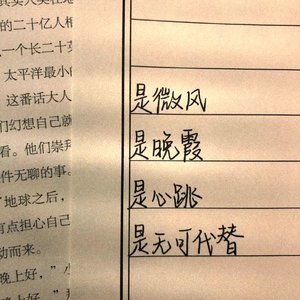 的二十亿人相
一个长二十英
太平洋最小的
这番话大人
们幻想自己就
看。他们崇拜
件无聊的事。
“地球之后，
有点担心自己
动而来。
晚上好，”小
是微风
是晚霞
是心跳
是无可代替